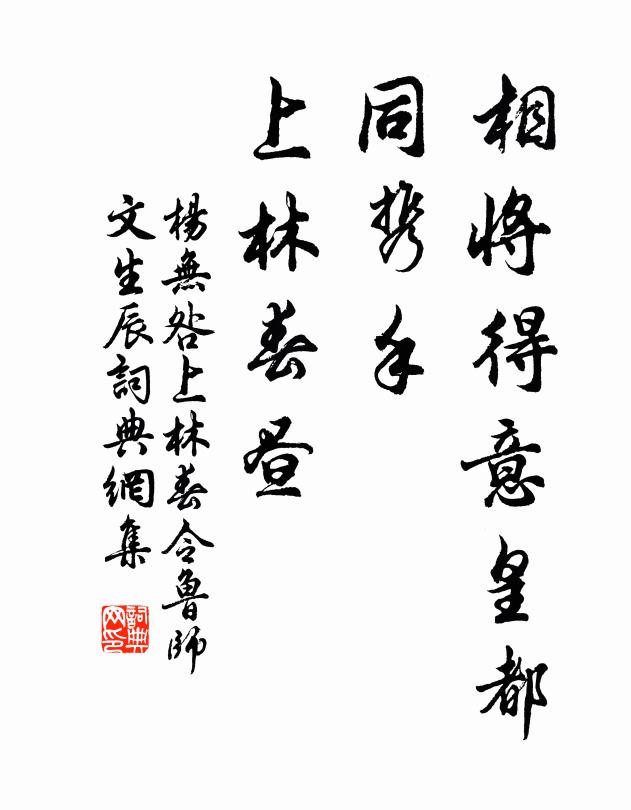 相將得意皇都
同携手
上林春昼
楊無咎上林春令魯師
文生辰詞典網集
詞典网印